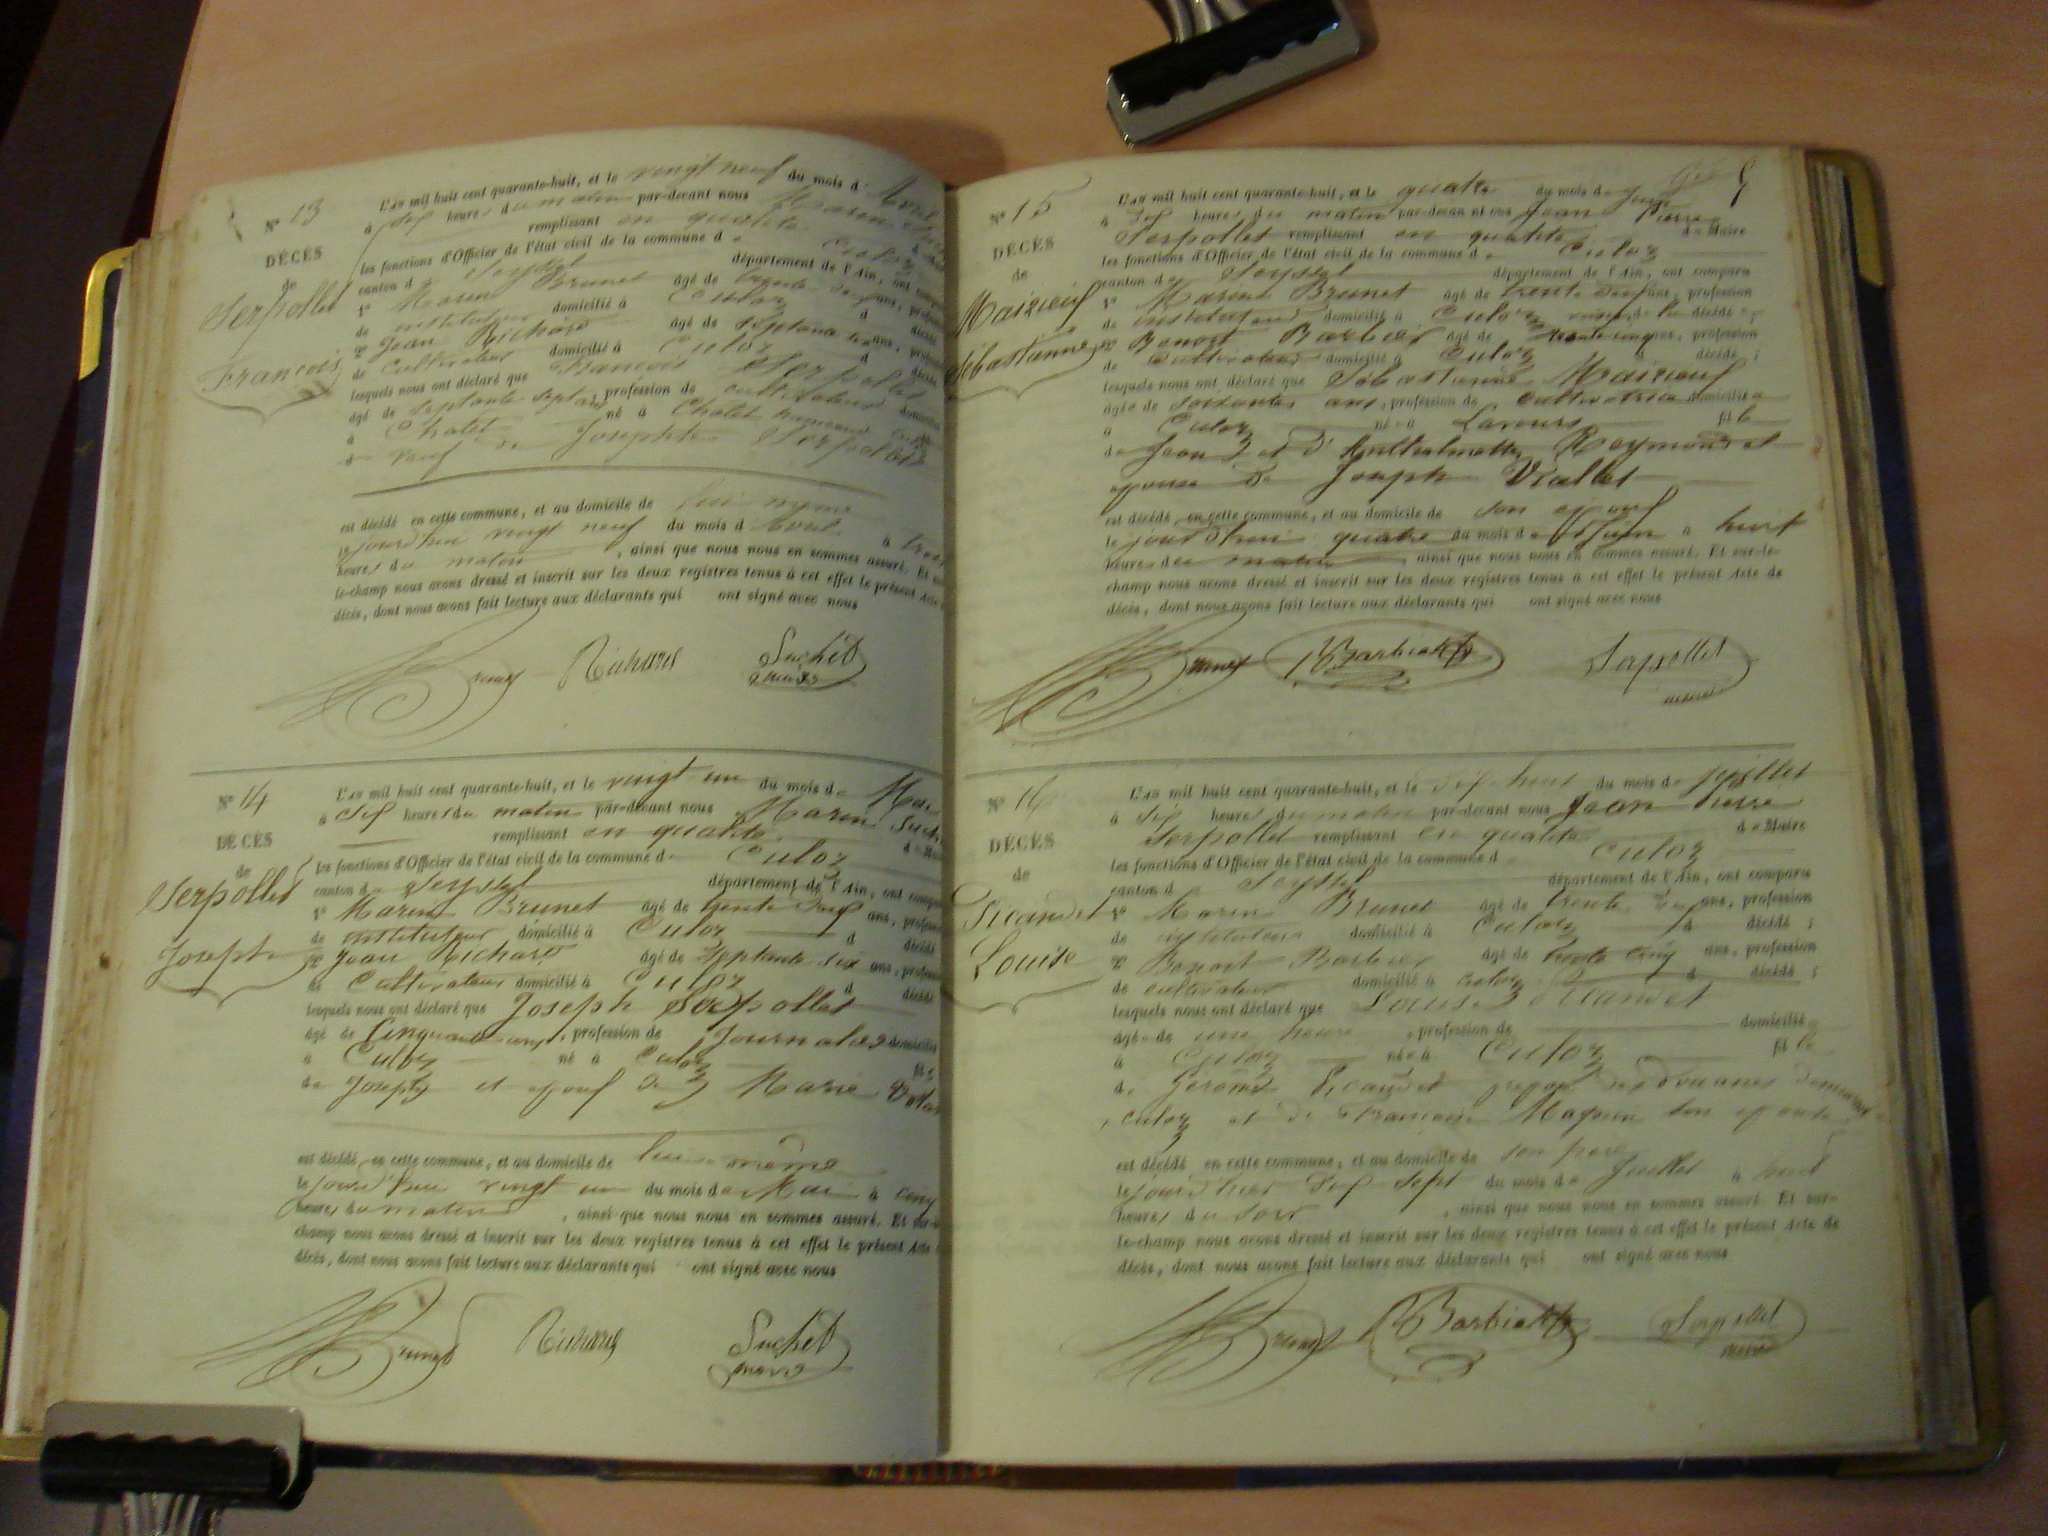 N° 13
DÉCÈS
de
Serpollet
François
L'AN mil huit cent quarante-huit, et le vingt neuf du mois d' Avril
à dix heures du matin par-devant nous Marin
remplissant en qualité
les fonctions d'Officier de l'état civil de la commune d Culoz
canton d Seyssel département de l'Ain, ont
1° Marin Brunet âgé de trente ans,
de instituteur domicilié à Culoz d
2° Jean Richard âgé de septante six ans,
de cultivateur domicilié à Culoz d
lesquels nous ont déclaré que François Serpollet
âgé de septante sept ans, profession de cultivateur
à Chatel né à Chatel hameau
d veuf de Josephte Serpollet
est décédé en cette commune, et au domicile de lui même
le jourd'hui vingt neuf du mois d Avril à
heures du matin, ainsi que nous nous en sommes assuré. Et
le-champ nous avons dressé et inscrit sur les deux registres tenus à cet effet le présent Acte
décès, dont nous avons fait lecture aux déclarants qui ont signé avec nous
Brunet Richard Suchet
maire
N° 14
DÉCÈS
de
Serpollet
Joseph
L'AN mil huit cent quarante-huit, et le vingt un du mois de Mai
à dix heures du matin par-devant nous Marin
remplissant en qualité
les fonctions d'Officier de l'état civil de la commune d Culoz
canton de Seyssel département de l'Ain, ont
1° Marin Brunet âgé de trente ans,
de instituteur domicilié à Culoz d décédé
2° Jean Richard âgé de septante six ans,
de cultivateur domicilié à Culoz d décédé
lesquels nous ont déclaré que Joseph Serpollet
âgé de Cinquante, profession de Journalier domicilié
à Culoz né à Culoz
de Joseph et époux de Marie
est décédé en cette commune, et au domicile de lui-même
le jourd'hui vingt un du mois de Mai à cinq
heures du matin, ainsi que nous nous en sommes assuré. Et sur-le
champ nous avons dressé et inscrit sur les deux registres tenus à cet effet le présent Acte
décès, dont nous avons fait lecture aux déclarants qui ont signé avec nous
Brunet Richard Suchet
maire
N° 15
DÉCÈS
de
Sébastianne
L'AN mil huit cent quarante-huit, et le quatre du mois de Juin
à dix heures du matin par-devant nous Jean Pierre
Serpollet remplissant en qualité de Maire
les fonctions d'Officier de l'état civil de la commune d Culoz
canton de Seyssel département de l'Ain, ont comparu
1° Marin Brunet âgé de trente ans, profession
de instituteur domicilié à Culoz décédé ;
2° Benoit Barbier âgé de trente cinq ans, profession
de cultivateur domicilié à Culoz décédé ;
lesquels nous ont déclaré que Sébastienne
âgée de soixante ans, profession de cultivatrice domiciliée
à Culoz née à Lavours fille
de Jean et d' Anthelmette Reymond et
épouse de Joseph Viallet
est décédé en cette commune, et au domicile de son époux
le jourd'hui quatre du mois de Juin à huit
heures du matin, ainsi que nous nous en sommes assuré. Et sur-le-
champ nous avons dressé et inscrit sur les deux registres tenus à cet effet le présent Acte de
décès, dont nous avons fait lecture aux déclarants qui ont signé avec nous
Brunet Barbier Serpollet
maire
N° 16
DÉCÈS
de
Picandet
Louise
L'AN mil huit cent quarante-huit, et le dix huit du mois de Juillet
à six heures du matin par-devant nous Jean Pierre
Serpollet remplissant en qualité de Maire
les fonctions d'Officier de l'état civil de la commune d Culoz
canton d Seyssel département de l'Ain, ont comparu
1° Marin Brunet âgé de trente ans, profession
de instituteur domicilié à Culoz d décédé ;
2° Benoit Barbier âgé de trente cinq ans, profession
de cultivateur domicilié à Culoz d décédé ;
lesquels nous ont déclaré que Louise Picandet
âgée de une heure, profession de domiciliée
à Culoz née à Culoz fille
de Jérôme Picandet préposé des douanes demeurant
à Culoz et de Francoise Maquin son épouse
est décédé en cette commune, et au domicile de son père
le jour d'hier dix sept du mois de Juillet à huit
heures du soir, ainsi que nous nous en sommes assuré. Et sur-
le-champ nous avons dressé et inscrit sur les deux registres tenus à cet effet le présent Acte de
décès, dont nous avons fait lecture aux déclarants qui ont signé avec nous
Brunet Barbier Serpollet
maire